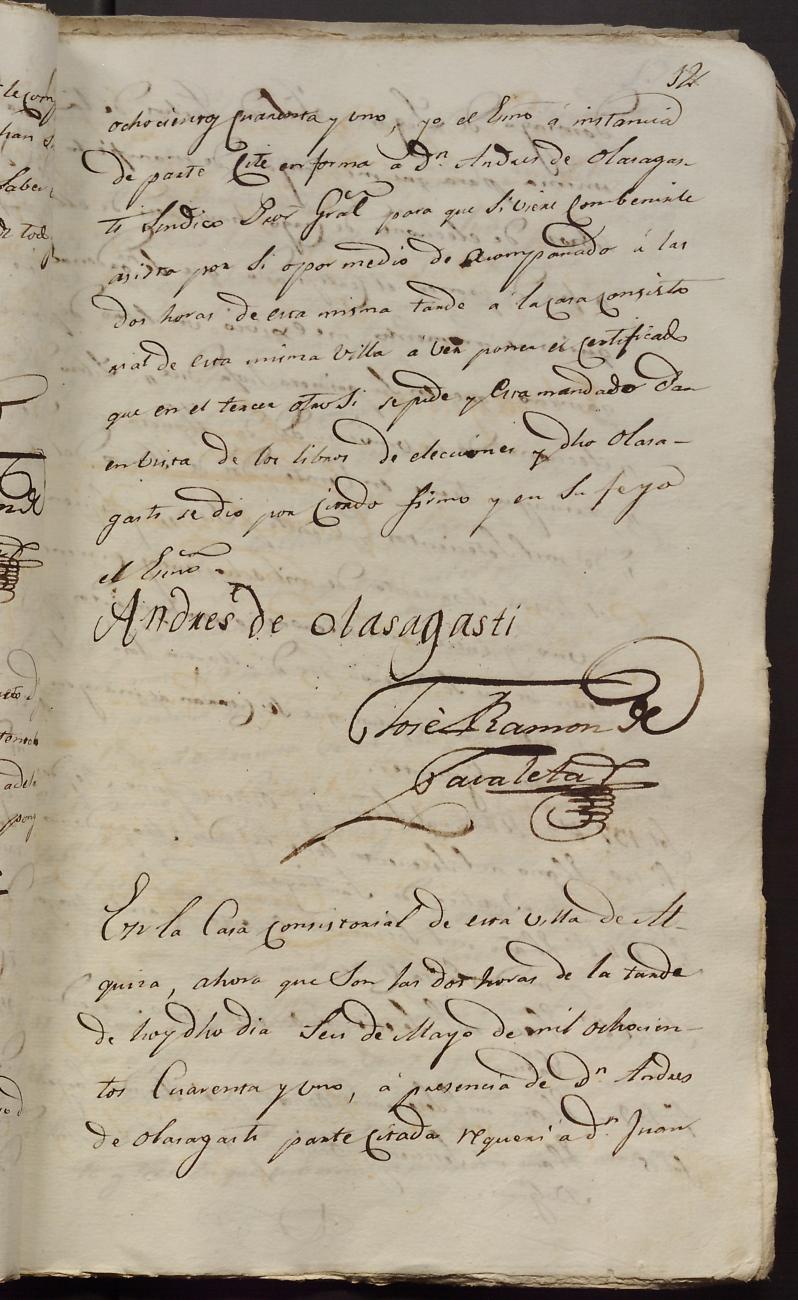 32
ochocientos Cuarenta y uno, yo el Esno á instancia
de parte Cité en forma á Dn. Andres de Olasagas-
ti Sindico Pror Gral para que si viene Combeniente
asista por si o por medio de acompañado á las
dos horas de esta misma tarde á la casa consisto
rial de esta misma Villa á ver poner el certificado
que en el tercer otro si se pide y esta mandado dar
en vista de los libros de elecciones y dho Olasa-
gasti se dió por Citado firmo y en su fe yo
el Esno.
Andres de Olasagasti
José Ramon de
Zavaleta
En la Casa consistorial de esta villa de
ahora que son las dos horas de la tarde
de hoy dho dia Seis de Mayo de mil ochocien-
tos Cuarenta y uno, á presencia de Dn Andres
de Olasagasti parte citada requeri á Dn. Juan